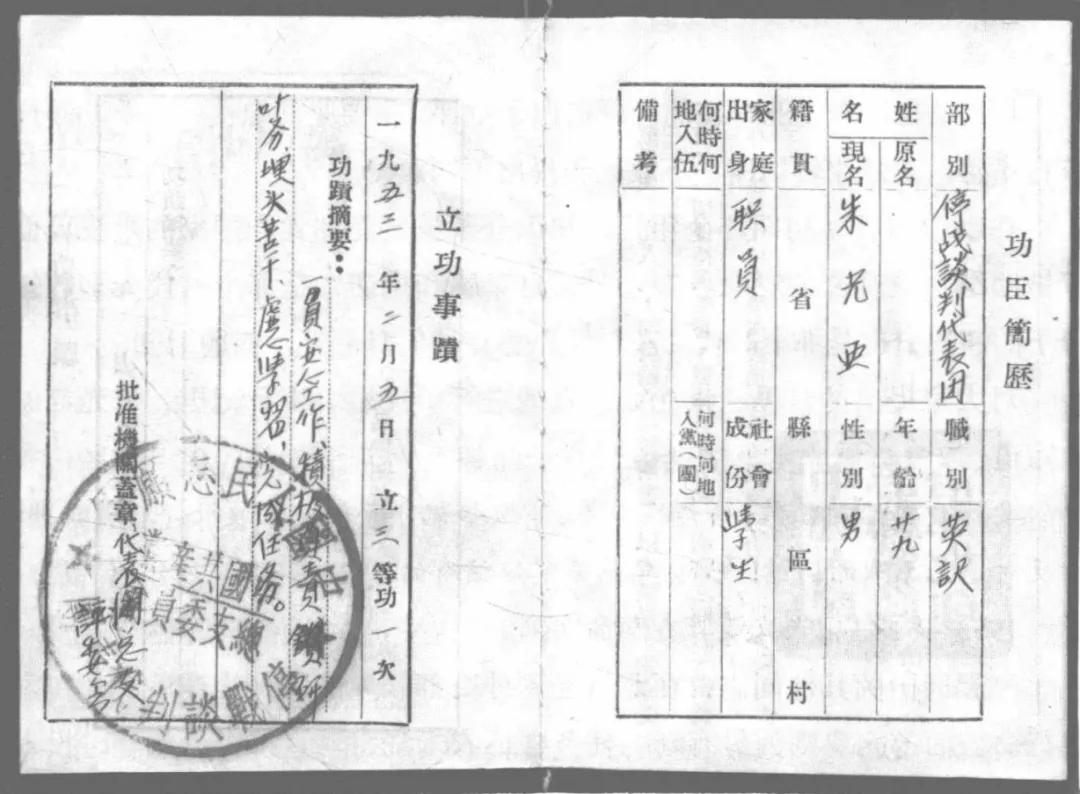 功臣簡歷
部別 停战談判代表团 職別 英訳
姓名 原名 年齡 廿九
現名 朱光亚 性別 男
籍貫 省 縣 區 村
家庭出身 职員 社會成份 學生
何時何地入伍 何時何地入黨(團)
備考
立功事蹟
一九五三年二月五日 立三等功一次
功蹟摘要：一員五人工作、積极負責 鑽研
埋头苦干 虚心學習，完成任务。
批准機關蓋章 代表團
評委会
民志願
停戰談判
中國共
總支委員